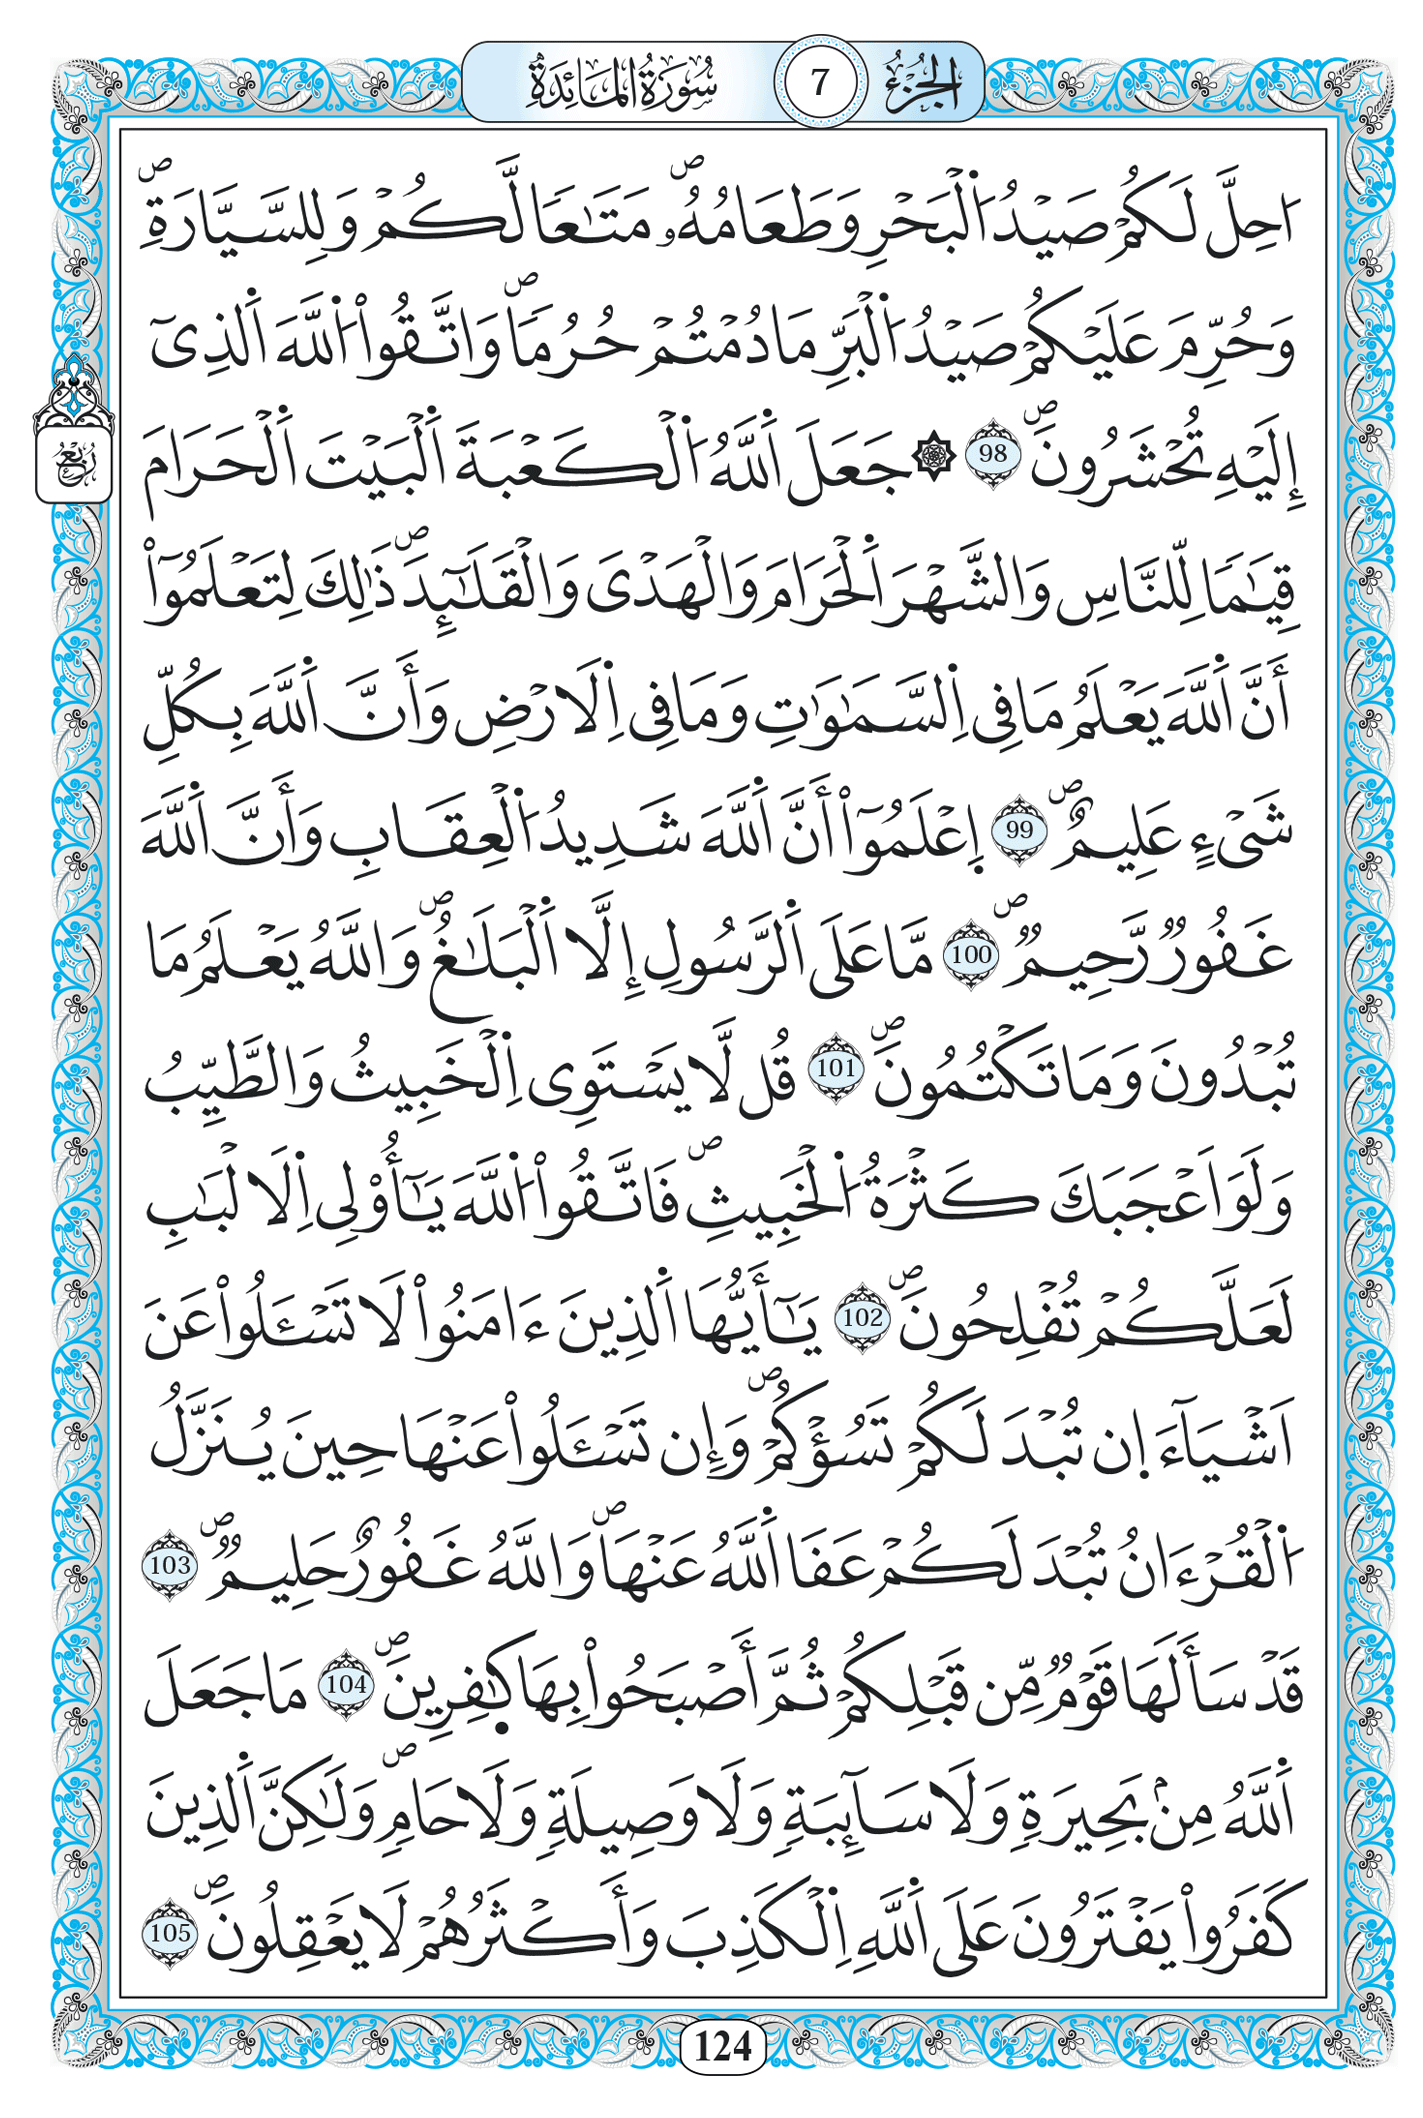 الجزء 7 سورة المائدة
اَحِلَّ لَكُمْ صَيْدُ اُ۬لْبَحْرِ وَطَعَامُهُۥ مَتَٰعاٗ لَّكُمْ وَلِلسَّيَّارَةِۖ
وَحُرِّمَ عَلَيْكُمْ صَيْدُ اُ۬لْبَرِّ مَا دُمْتُمْ حُرُماٗۖ وَاتَّقُواْ اُ۬للَّهَ اَ۬لَّذِےٓ
إِلَيْهِ تُحْشَرُونَۖ 98 ۞ جَعَلَ اَ۬للَّهُ اُ۬لْكَعْبَةَ اَ۬لْبَيْتَ اَ۬لْحَرَامَ
قِيَٰماٗ لِّلنَّاسِ وَالشَّهْرَ اَ۬لْحَرَامَ وَالْهَدْيَ وَالْقَلَٰٓئِدَۖ ذَٰلِكَ لِتَعْلَمُوٓاْ
أَنَّ اَ۬للَّهَ يَعْلَمُ مَا فِے اِ۬لسَّمَٰوَٰتِ وَمَا فِے اِ۬لَارْضِ وَأَنَّ اَ۬للَّهَ بِكُلِّ
شَےْءٍ عَلِيمٌۖ 99 اِ۪عْلَمُوٓاْ أَنَّ اَ۬للَّهَ شَدِيدُ اُ۬لْعِقَابِ وَأَنَّ اَ۬للَّهَ
غَفُورٞ رَّحِيمٞۖ 100 مَّا عَلَى اَ۬لرَّسُولِ إِلَّا اَ۬لْبَلَٰغُۖ وَاللَّهُ يَعْلَمُ مَا
تُبْدُونَ وَمَا تَكْتُمُونَۖ 101 قُل لَّا يَسْتَوِے اِ۬لْخَبِيثُ وَالطَّيِّبُ
وَلَوَ اَعْجَبَكَ كَثْرَةُ اُ۬لْخَبِيثِۖ فَاتَّقُواْ اُ۬للَّهَ يَٰٓأُوْلِے اِ۬لَالْبَٰبِ
لَعَلَّكُمْ تُفْلِحُونَۖ 102 يَٰٓأَيُّهَا اَ۬لَّذِينَ ءَامَنُواْ لَا تَسْـَٔلُواْ عَنَ
اَشْيَآءَ اِ۪ن تُبْدَ لَكُمْ تَسُؤْكُمْۖ وَإِن تَسْـَٔلُواْ عَنْهَا حِينَ يُنَزَّلُ
اُ۬لْقُرْءَانُ تُبْدَ لَكُمْ عَفَا اَ۬للَّهُ عَنْهَاۖ وَاللَّهُ غَفُورٌ حَلِيمٞۖ 103
قَدْ سَأَلَهَا قَوْمٞ مِّن قَبْلِكُمْ ثُمَّ أَصْبَحُواْ بِهَا كٰ۪فِرِينَۖ 104 مَا جَعَلَ
اَ۬للَّهُ مِنۢ بَحِيرَةٖ وَلَا سَآئِبَةٖ وَلَا وَصِيلَةٖ وَلَا حَامٖۖ وَلَٰكِنَّ اَ۬لَّذِينَ
كَفَرُواْ يَفْتَرُونَ عَلَى اَ۬للَّهِ اِ۬لْكَذِبَ وَأَكْثَرُهُمْ لَا يَعْقِلُونَۖ 105
ربع
124